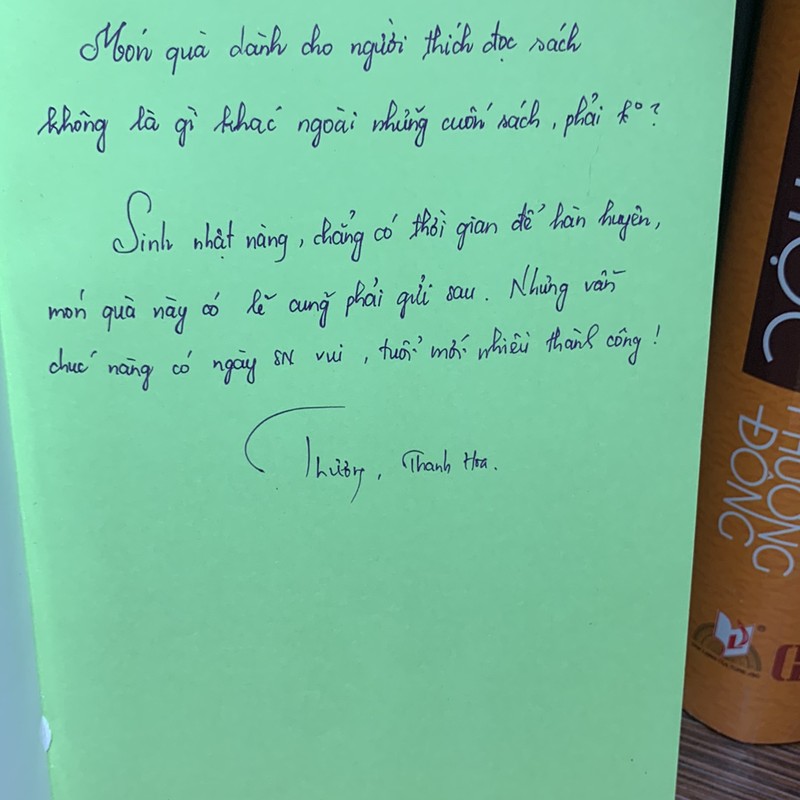 Món quà dành cho người thích đọc sách
không là gì khác ngoài những cuốn sách, phải k°?
Sinh nhật nàng, chẳng có thời gian để hàn huyên,
món quà này có lẽ cũng phải gửi sau. Nhưng vẫn
chúc nàng có ngày SN vui, tuổi mới nhiều thành công!
Thương, Thanh Hoa.
ỘC
THƯƠNG
ĐÔNG